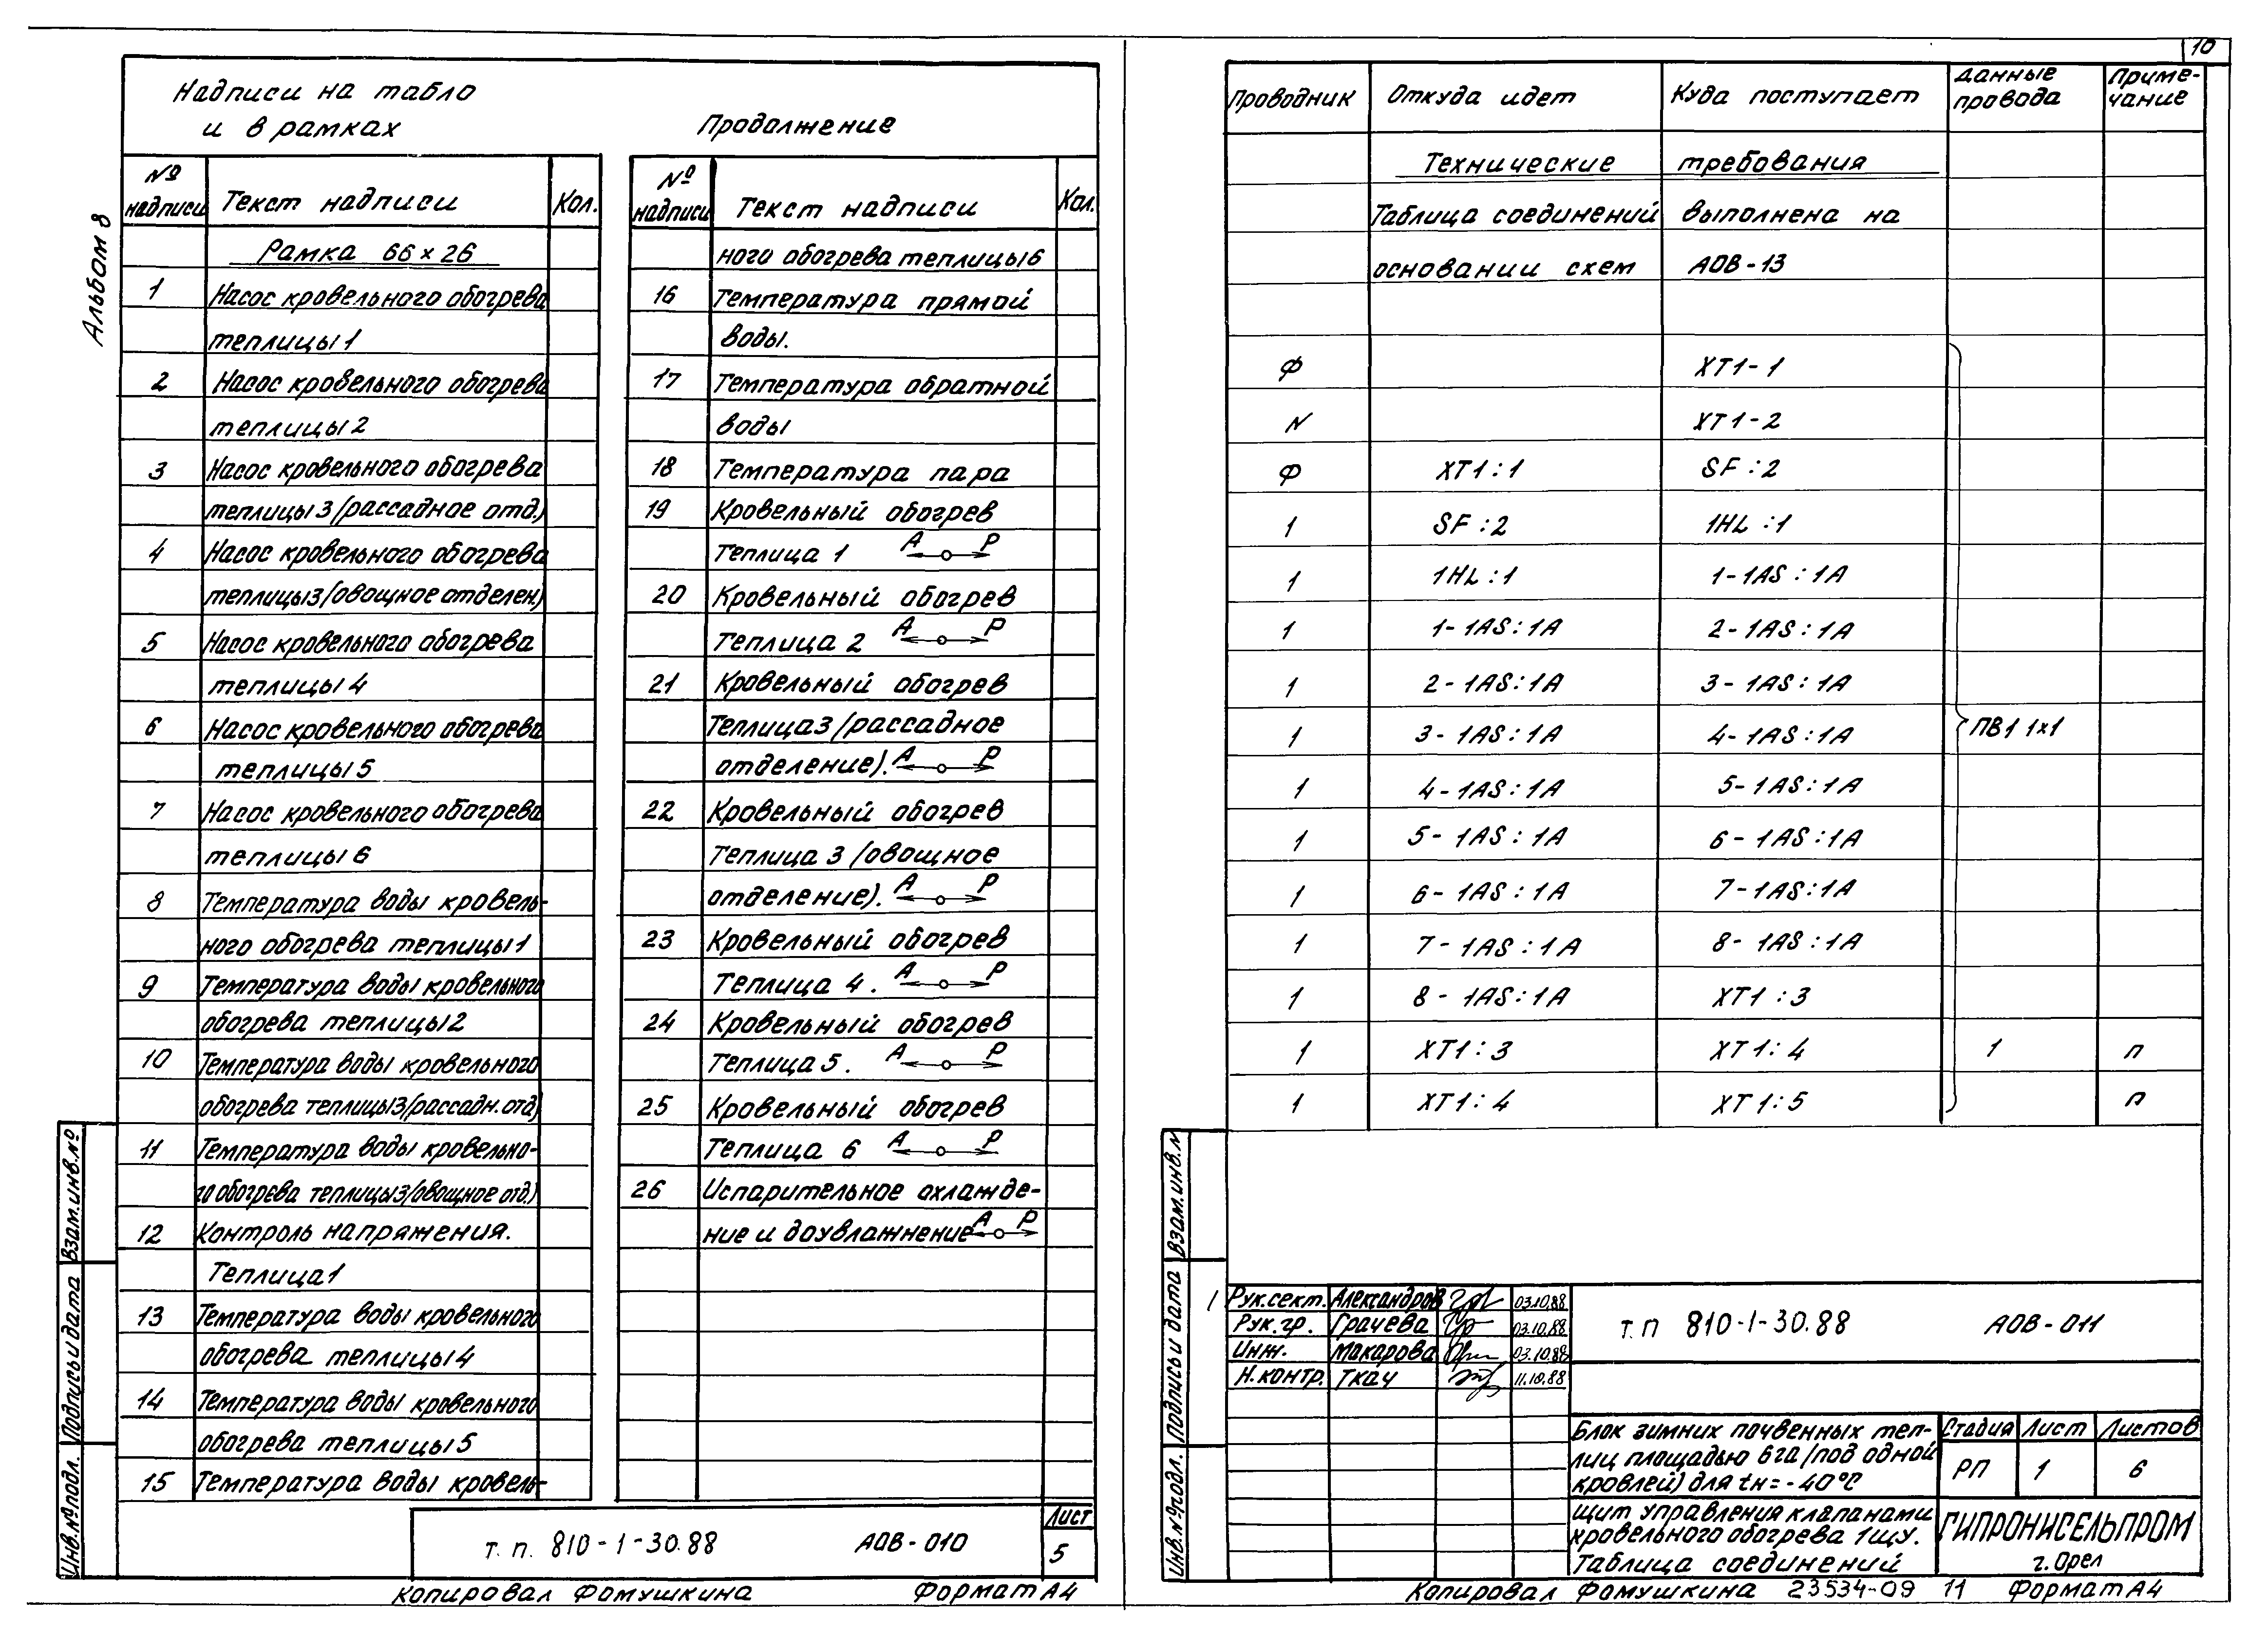 10
Альбом 8
Надписи на табло
и в рамках
№ надписи Текст надписи Кол.
Рамка 66×26
1 Насос кровельного обогрева
теплицы 1
2 Насос кровельного обогрева
теплицы 2
3 Насос кровельного обогрева
теплицы 3 /рассадное отд.)
4 Насос кровельного обогрева
теплицы 3/овощное отделен)
5 Насос кровельного обогрева
теплицы 4
6 Насос кровельного обогрева
теплицы 5
7 Насос кровельного обогрева
теплицы 6
8 Температура воды кровель-
ного обогрева теплицы 1
9 Температура воды кровельного
обогрева теплицы 2
10 Температура воды кровельного
обогрева теплицы 3/рассадн. отд)
11 Температура воды кровельно-
го обогрева теплицы 3/овощное отд.)
12 Контроль напряжения.
Теплица 1
13 Температура воды кровельного
обогрева теплицы 4
14 Температура воды кровельного
обогрева теплицы 5
15 Температура воды кровель-
Продолжение
№ надписи Текст надписи Кол.
ного обогрева теплицы 6
16 Температура прямой
воды.
17 Температура обратной
воды
18 Температура пара
19 Кровельный обогрев
Теплица 1 А Р
20 Кровельный обогрев
Теплица 2 А Р
21 Кровельный обогрев
Теплица 3 /рассадное
отделение). А Р
22 Кровельный обогрев
Теплица 3 /овощное
отделение). А Р
23 Кровельный обогрев
Теплица 4. А Р
24 Кровельный обогрев
Теплица 5. А Р
25 Кровельный обогрев
Теплица 6 А Р
26 Испарительное охлажде-
ние и доувлажнение А Р
Взам. инв. №
Подпись и дата
Инв. № подл.
т. п. 810-1-30.88 АОВ-010
Лист
5
Копировал Фомушкина Формат А4
Проводник Откуда идет Куда поступает Данные провода Приме-чание
Технические требования
Таблица соединений выполнена на
основании схем АОВ-13
Ф XT1-1
N XT1-2
Ф XT1:1 SF:2
1 SF:2 1HL:1
1 1HL:1 1-1AS:1A
1 1-1AS:1A 2-1AS:1A
1 2-1AS:1A 3-1AS:1A
1 3-1AS:1A 4-1AS:1A ПВ1 1×1
1 4-1AS:1A 5-1AS:1A
1 5-1AS:1A 6-1AS:1A
1 6-1AS:1A 7-1AS:1A
1 7-1AS:1A 8-1AS:1A
1 8-1AS:1A XT1:3
1 XT1:3 XT1:4 1 п
1 XT1:4 XT1:5 п
Взам. инв. N
Подпись и дата
Инв. № подл.
1
Рук. сект. Александров 03.10.88
Рук. гр. Грачева 03.10.88
Инж. Макарова 03.10.88
Н. контр. Ткач 11.10.88
т. п 810-1-30.88 АОВ-011
Блок зимних почвенных теп-
лиц площадью 6га /под одной
кровлей) для tн=-40°С
Стадия Лист Листов
РП 1 6
Щит управления клапанами
кровельного обогрева 1ЩУ.
Таблица соединений
ГИПРОНИСЕЛЬПРОМ
г. Орел
Копировал Фомушкина 23534-09 11 Формат А4